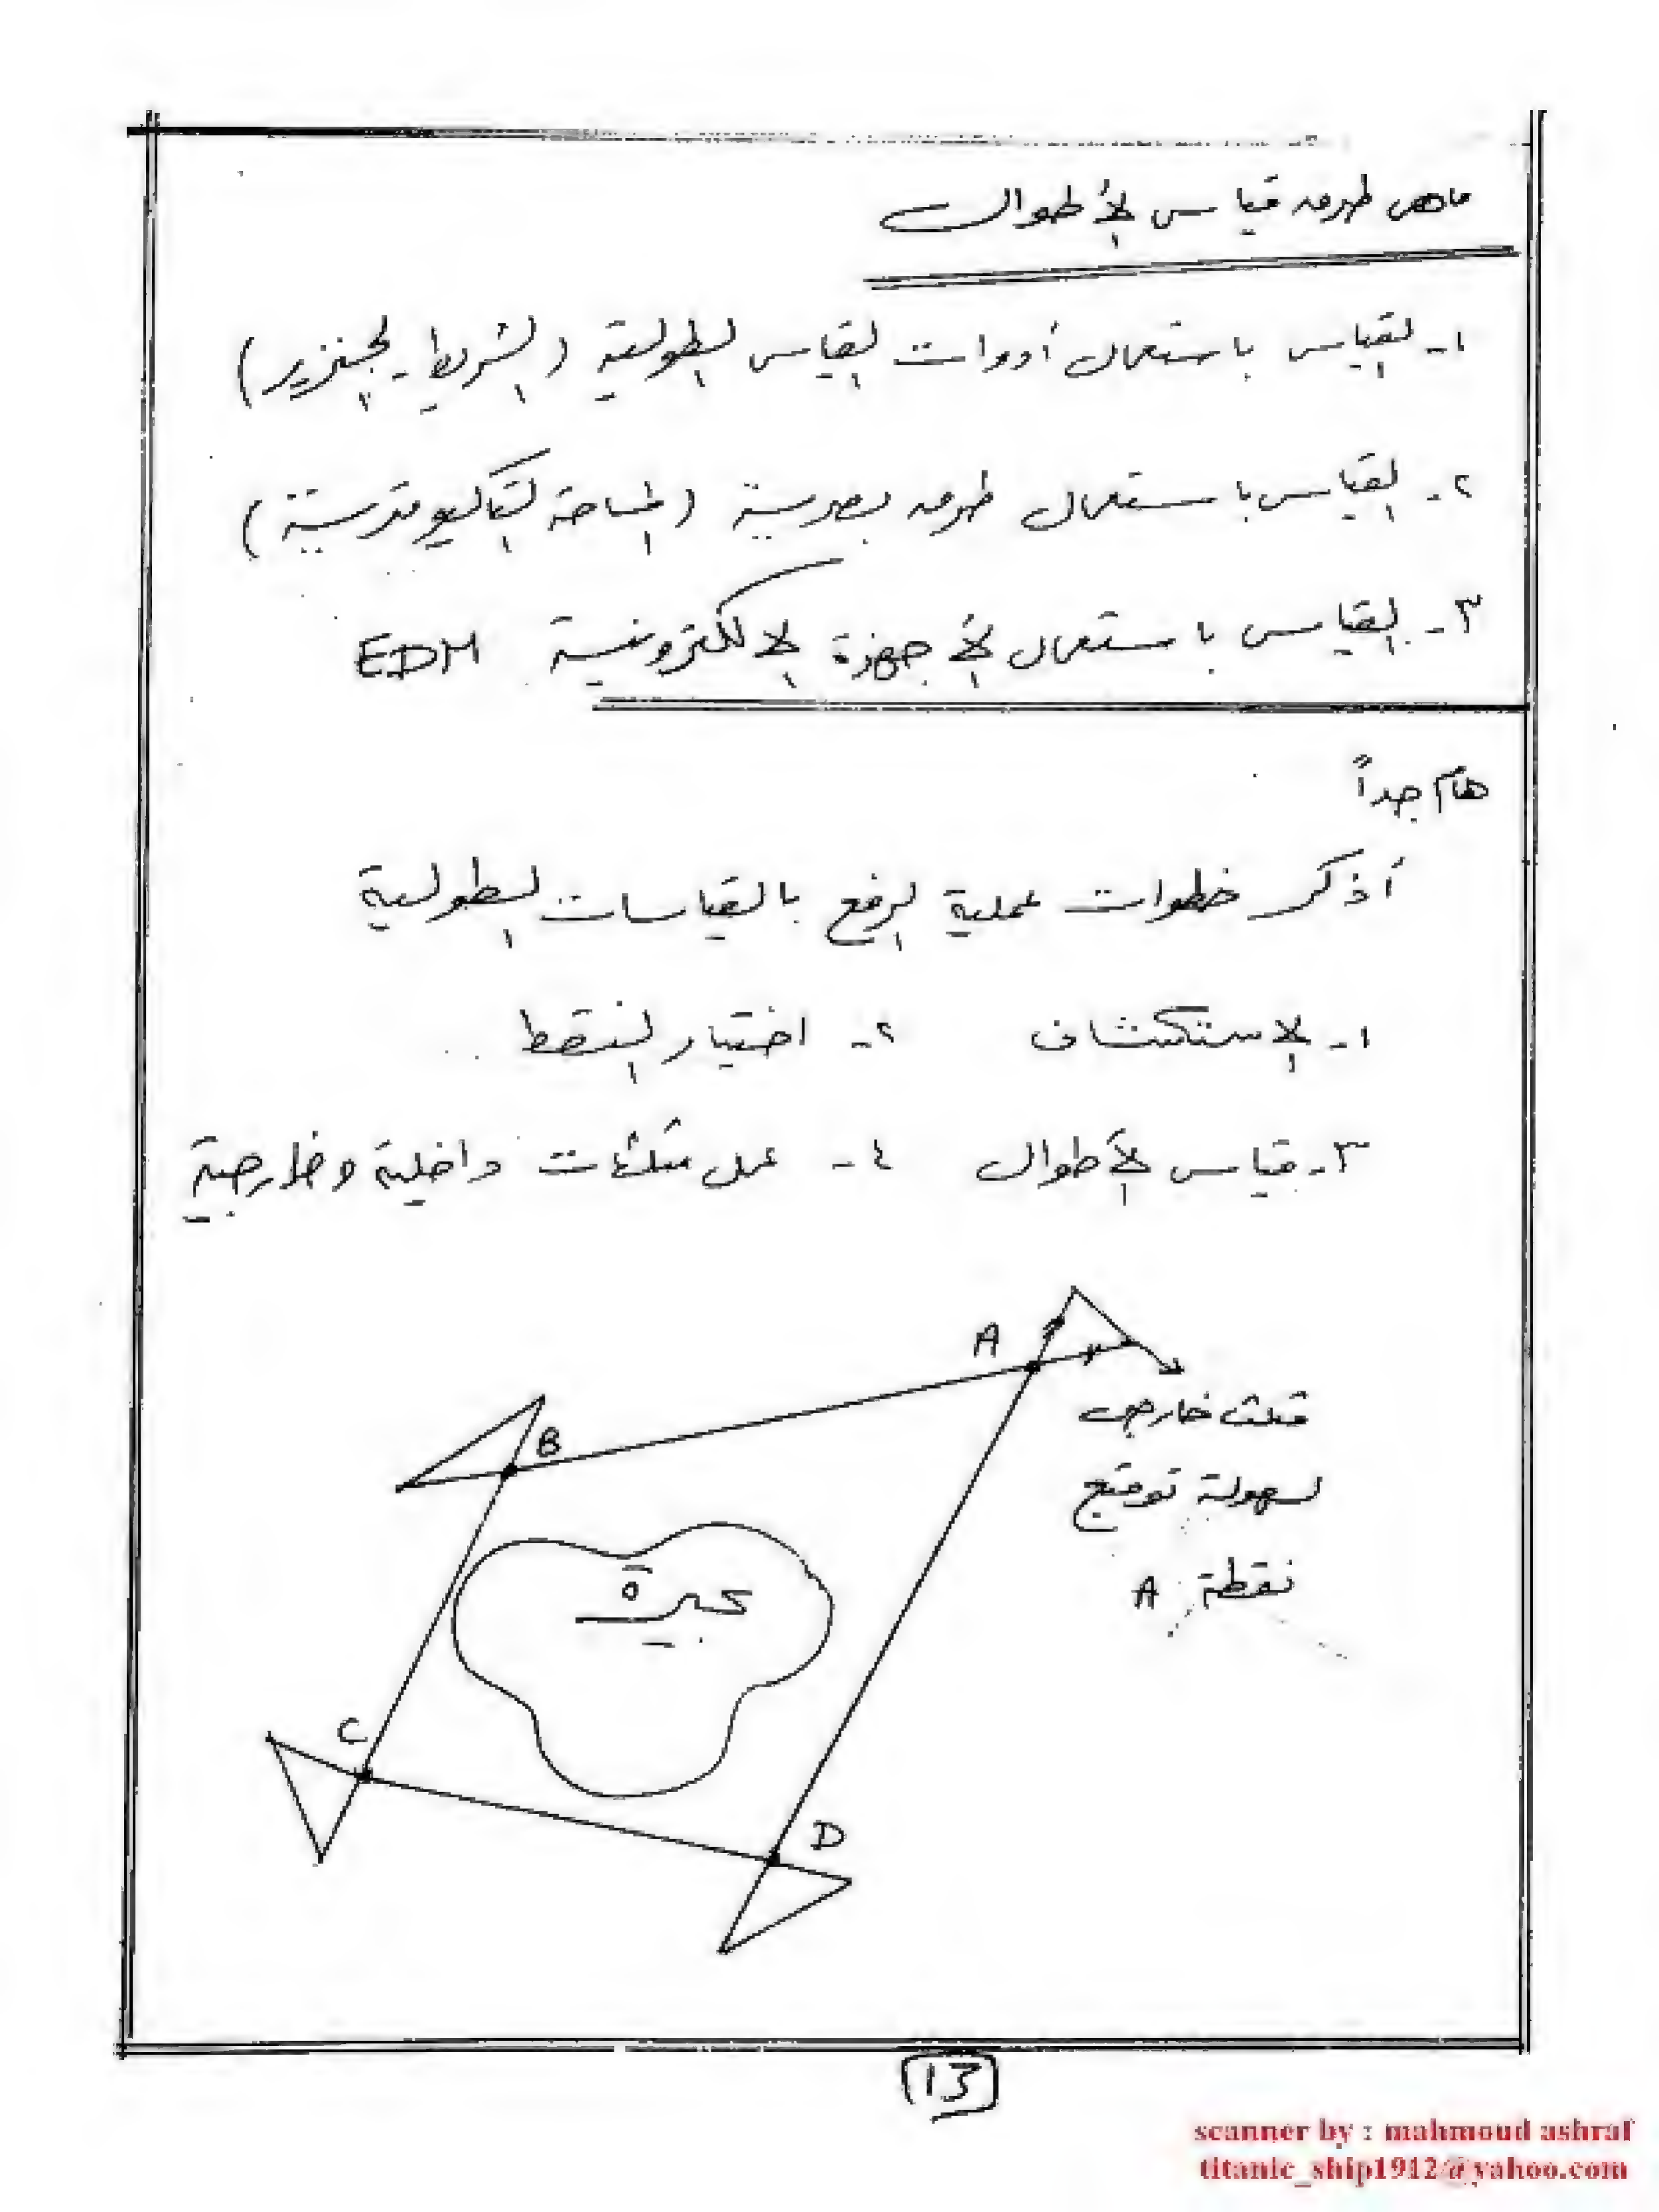 ما هى طرق قياس الأطوال
١- القياس باستعمال أدوات القياس الطولية (الشريط - الجنزير)
٢- القياس باستعمال طرق بصرية (المساحة التاكيومترية)
٣- القياس باستعمال الأجهزة الالكترونية EDM
هام جداً
أذكر خطوات عملية الرفع بالقياسات الطولية
١- الاستكشاف ٢- اختيار النقط
٣- قياس الأطوال ٤- عمل مثلثات داخلية وخارجية
A
B
مثلث خارجى
لسهولة توقيع
نقطة A
بحيرة
C
D
13
scanner by : mahmoud ashraf
titanic_ship1912@yahoo.com